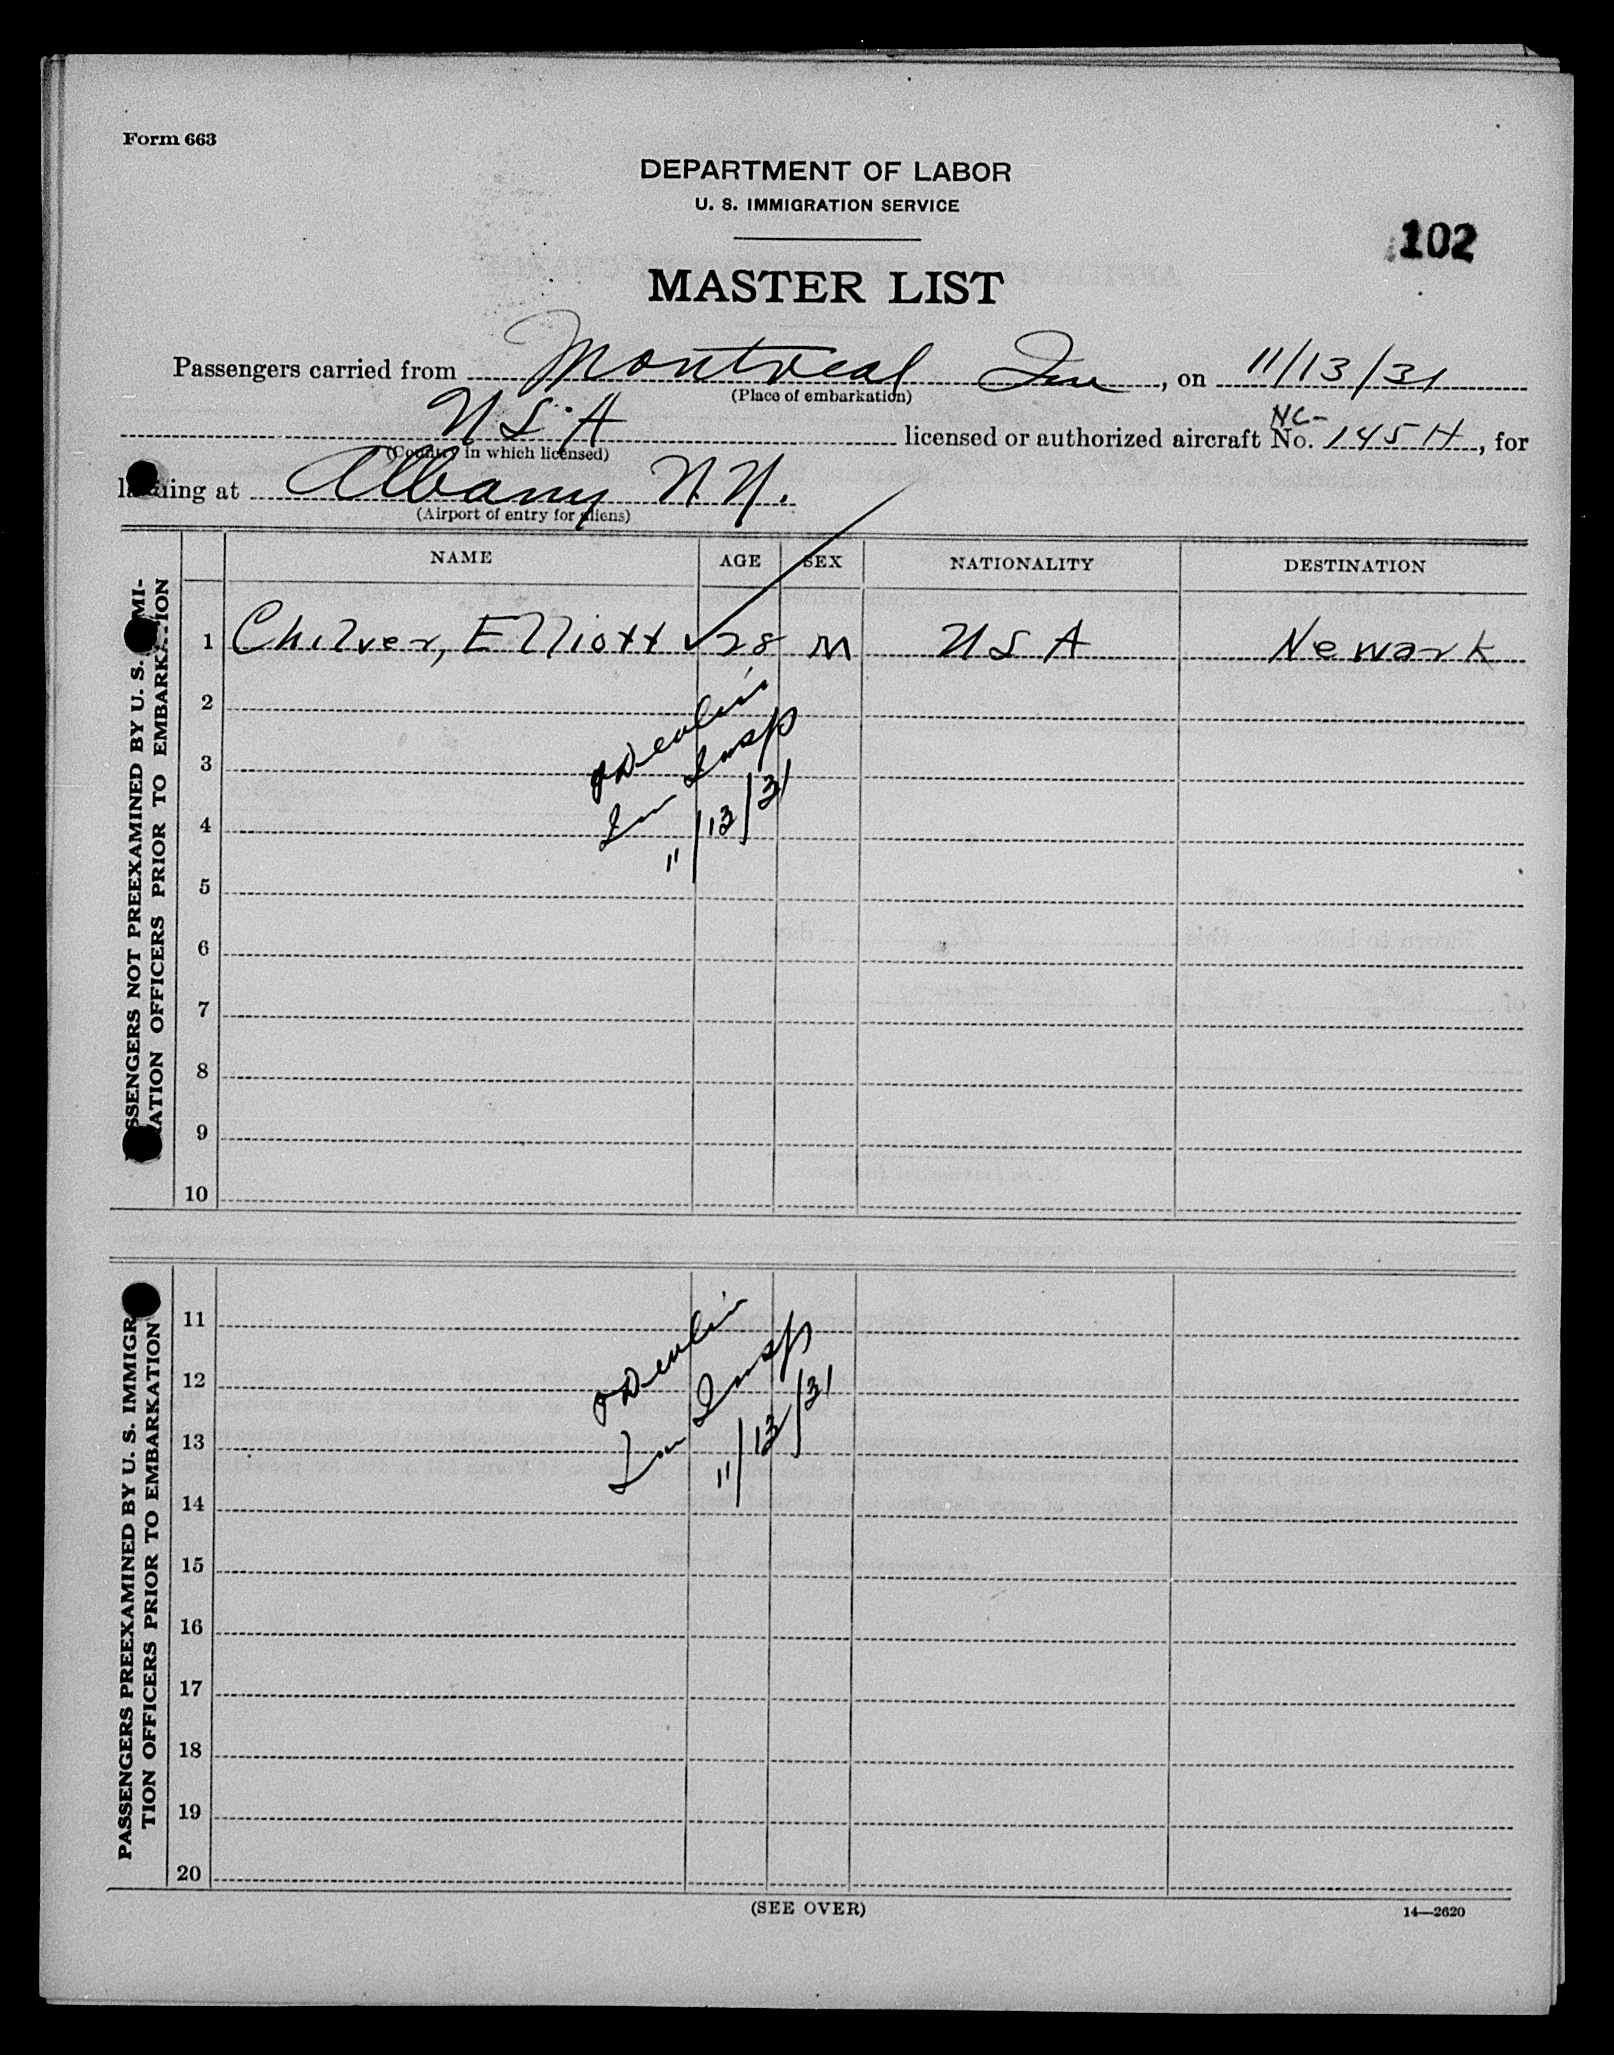 Form 663
DEPARTMENT OF LABOR
U. S. IMMIGRATION SERVICE
102
MASTER LIST
Passengers carried from Montreal Que, on 11/13/31
(Place of embarkation)
USA licensed or authorized aircraft NC- No. 145H, for
(Country in which licensed)
landing at Albany N.Y.
(Airport of entry for aliens)
NAME AGE SEX NATIONALITY DESTINATION
1 Chilver, Elliott 28 M USA Newark
2
3
4
5
6
7
8
9
10
Devlin
Imm Insp
11/13/31
SSENGERS NOT PREEXAMINED BY U. S. MI-
RATION OFFICERS PRIOR TO EMBARKATION
11
12
13
14
15
16
17
18
19
20
Devlin
Imm Insp
11/13/31
PASSENGERS PREEXAMINED BY U. S. IMMIGR
TION OFFICERS PRIOR TO EMBARKATION
(SEE OVER)
14—2620